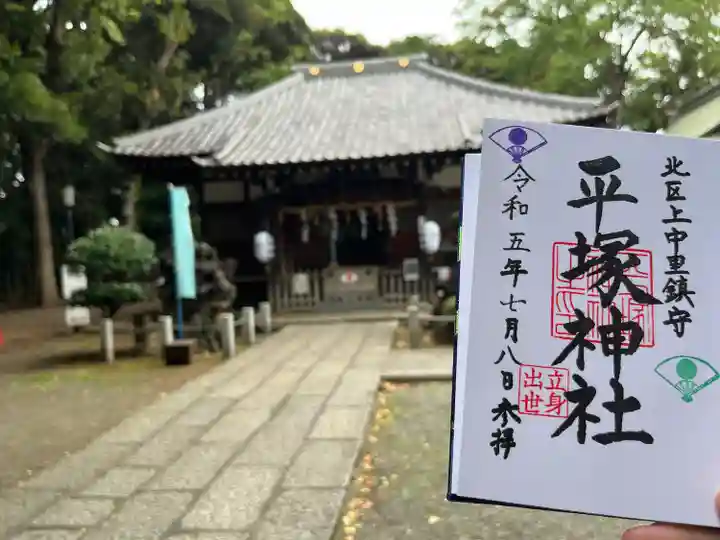 北区上中里鎮守
平塚神社
令和五年七月八日参拝
立身
出世